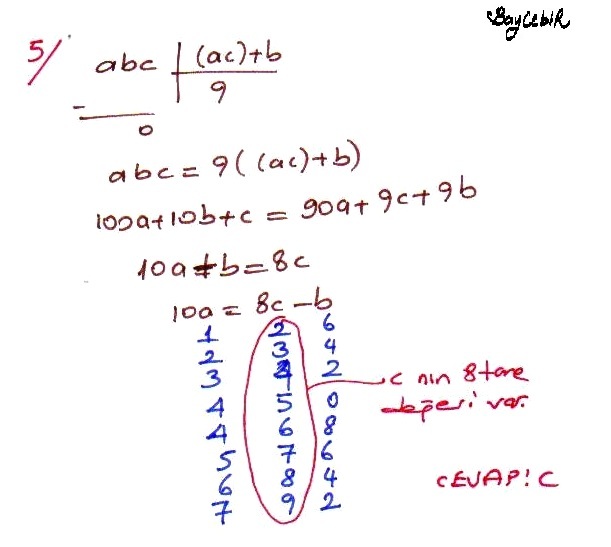 BayCebiR
5/
abc | (ac)+b
- 9
0
abc = 9((ac)+b)
100a+10b+c = 90a+9c+9b
10a+b=8c
10a = 8c-b
1 2 6
2 3 4
3 4 2
4 5 0
4 6 8
5 7 6
6 8 4
7 9 2
c nin 8 tane
değeri var.
CEVAP! C